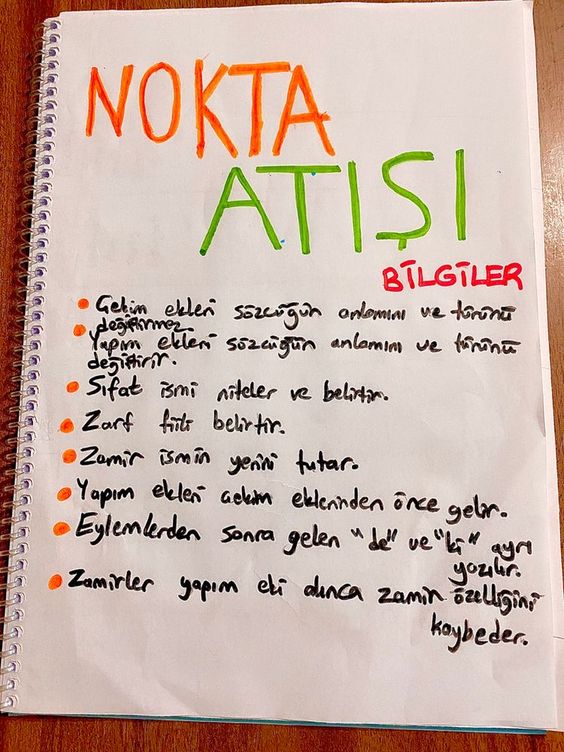 NOKTA
ATIŞI
BİLGİLER
Çekim ekleri sözcüğün anlamını ve türünü
değiştirmez
Yapım ekleri sözcüğün anlamını ve türünü
değiştirir.
Sıfat ismi niteler ve belirtir.
Zarf fiili belirtir.
Zamir ismin yerini tutar.
Yapım ekleri çekim eklerinden önce gelir.
Eylemlerden sonra gelen "de" ve "ki" ayrı
yazılır.
Zamirler yapım eki alınca zamir özelliğini
kaybeder.